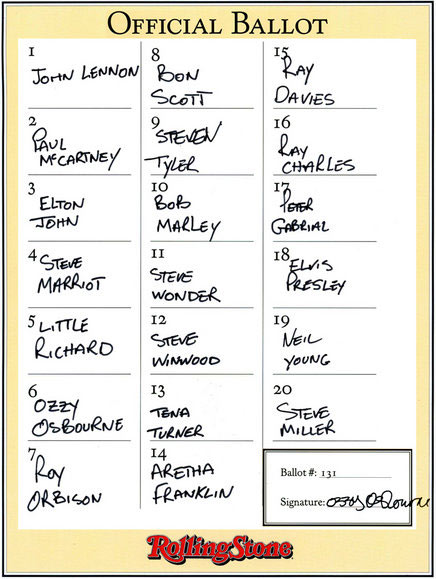 OFFICIAL BALLOT
1
JOHN LENNON
2
PAUL
McCARTNEY
3
ELTON
JOHN
4 STEVE
MARRIOT
5 LITTLE
RICHARD
6
OZZY
OSBOURNE
7
ROY
ORBISON
8
BON
SCOTT
9
STEVEN
TYLER
10
BOB
MARLEY
11
STEVE
WONDER
12
STEVE
WINWOOD
13
TENA
TURNER
14
ARETHA
FRANKLIN
15
RAY
DAVIES
16
RAY
CHARLES
17
PETER
GABRIAL
18
ELVIS
PRESLEY
19
NEIL
YOUNG
20
STEVE
MILLER
Ballot #: 131
Signature: Ozzy Osbourne
RollingStone